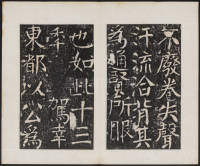 不廢卷失聲
汗流合背其
為通賢所服
也如此十三
年駕幸
東都以公為